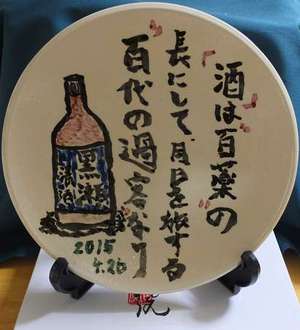 酒は百薬の
長にして月日を旅する
百代の過客なり
黒瀬
2015
4.26